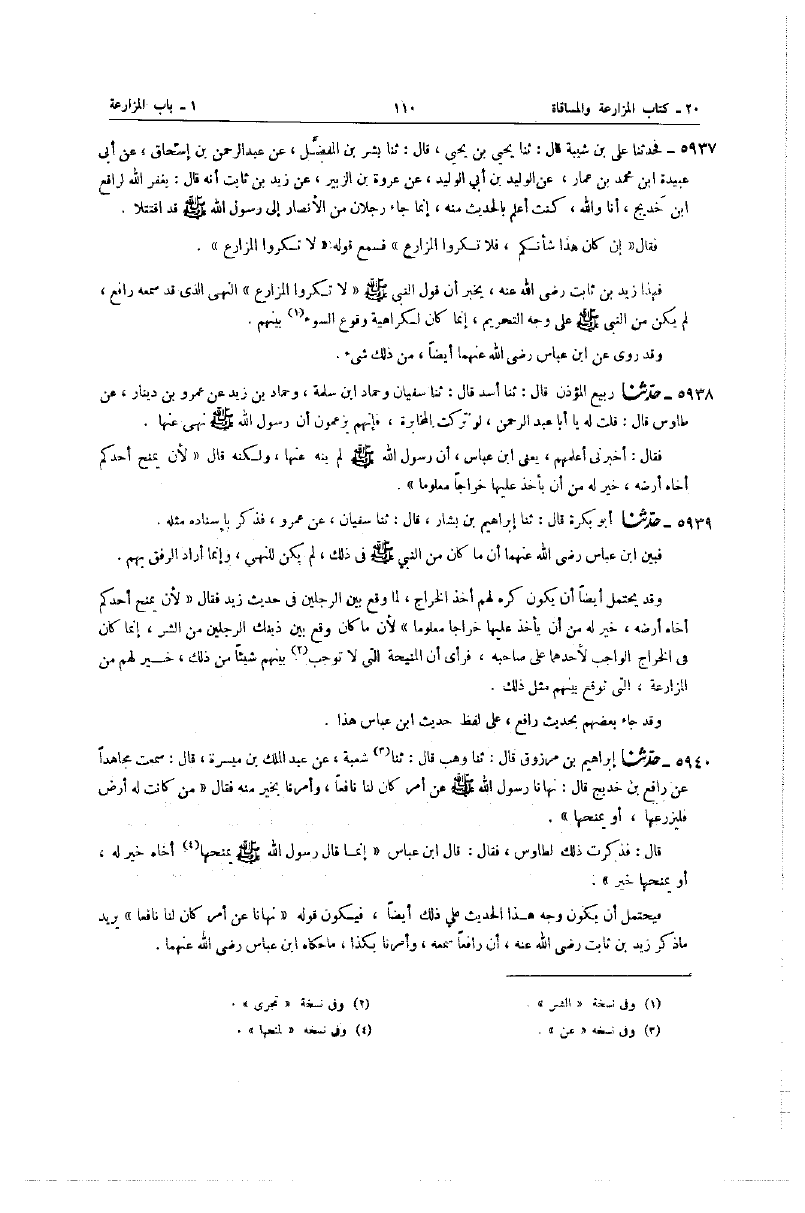 ٢٠ ـ كتاب المزارعة والمساقاة ١١٠ ١ ـ باب المزارعة
٥٩٣٧ ـ فحدثنا على بن شيبة قال : ثنا يحيى بن يحيى ، قال : ثنا بشر بن المفضَّل ، عن عبدالرحمن بن إسحاق ، عن أبى
عبيدة ابن محمد بن عمار ، عن الوليد بن أبي الوليد ، عن عروة بن الزبير ، عن زيد بن ثابت أنه قال : يغفر الله لرافع
ابن خَديج ، أنا والله ، كنت أعلم بالحديث منه ، إنما جاء رجلان من الأنصار إلى رسول الله ﷺ قد اقتتلا .
فقال « إن كان هذا شأنكم ، فلا تكروا المزارع » فسمع قوله: « لا تكروا المزارع » .
فهذا زيد بن ثابت رضى الله عنه ، يخبر أن قول النبى ﷺ « لا تكروا المزارع » النهى الذى قد سمعه رافع ،
لم يكن من النبى ﷺ على وجه التحريم ، إنما كان لكراهية وقوع السوء(١) بينهم .
وقد روى عن ابن عباس رضى الله عنهما أيضاً ، من ذلك شىء .
٥٩٣٨ ـ حدّثنا ربيع المؤذن قال : ثنا أسد قال : ثنا سفيان وحماد ابن سلمة ، وحماد بن زيد عن عمرو بن دينار ، عن
طاوس قال : قلت له يا أبا عبد الرحمن ، لو تركت المخابرة ، فإنهم يزعمون أن رسول الله ﷺ نهى عنها .
فقال : أخبرنى أعلمهم ، يعنى ابن عباس ، أن رسول الله ﷺ لم ينه عنها ، ولكنه قال « لأن يمنح أحدكم
أخاه أرضه ، خير له من أن يأخذ عليها خراجاً معلوما » .
٥٩٣٩ ـ حدّثنا أبو بكرة قال : ثنا إبراهيم بن بشار ، قال : ثنا سفيان ، عن عمرو ، فذكر بإسناده مثله .
فبين ابن عباس رضى الله عنهما أن ما كان من النبي ﷺ فى ذلك ، لم يكن للنهي ، وإنما أراد الرفق بهم .
وقد يحتمل أيضاً أن يكون كره لهم أخذ الخراج ، لما وقع بين الرجلين فى حديث زيد فقال « لأن يمنح أحدكم
أخاه أرضه ، خير له من أن يأخذ عليها خراجا معلوما » لأن ما كان وقع بين ذينك الرجلين من الشر ، إنما كان
فى الخراج الواجب لأحدهما على صاحبه ، فرأى أن المنيحة التى لا توجب(٢) بينهم شيئاً من ذلك ، خير لهم من
المزارعة ، التى توقع بينهم مثل ذلك .
وقد جاء بعضهم بحديث رافع ، على لفظ حديث ابن عباس هذا .
٥٩٤٠ ـ حدّثنا إبراهيم بن مرزوق قال : ثنا وهب قال : ثنا(٣) شعبة ، عن عبد الملك بن ميسرة ، قال : سمعت مجاهداً
عن رافع بن خديج قال : نهانا رسول الله ﷺ عن أمر كان لنا نافعاً ، وأمرنا بخير منه فقال « من كانت له أرض
فليزرعها ، أو يمنحها » .
قال : فذكرت ذلك لطاوس ، فقال : قال ابن عباس « إنما قال رسول الله ﷺ يمنحها(٤) أخاه خير له ،
أو يمنحها خير » .
فيحتمل أن يكون وجه هذا الحديث علي ذلك أيضاً ، فيكون قوله « نهانا عن أمر كان لنا نافعا » يريد
ماذكر زيد بن ثابت رضى الله عنه ، أن رافعاً سمعه ، وأمرنا بكذا ، ماحكاه ابن عباس رضى الله عنهما .
(١) وفى نسخة « الشر » . (٢) وفى نسخة « تجرى » .
(٣) وفى نسخه « عن » . (٤) وفى نسخه « لمنحها » .